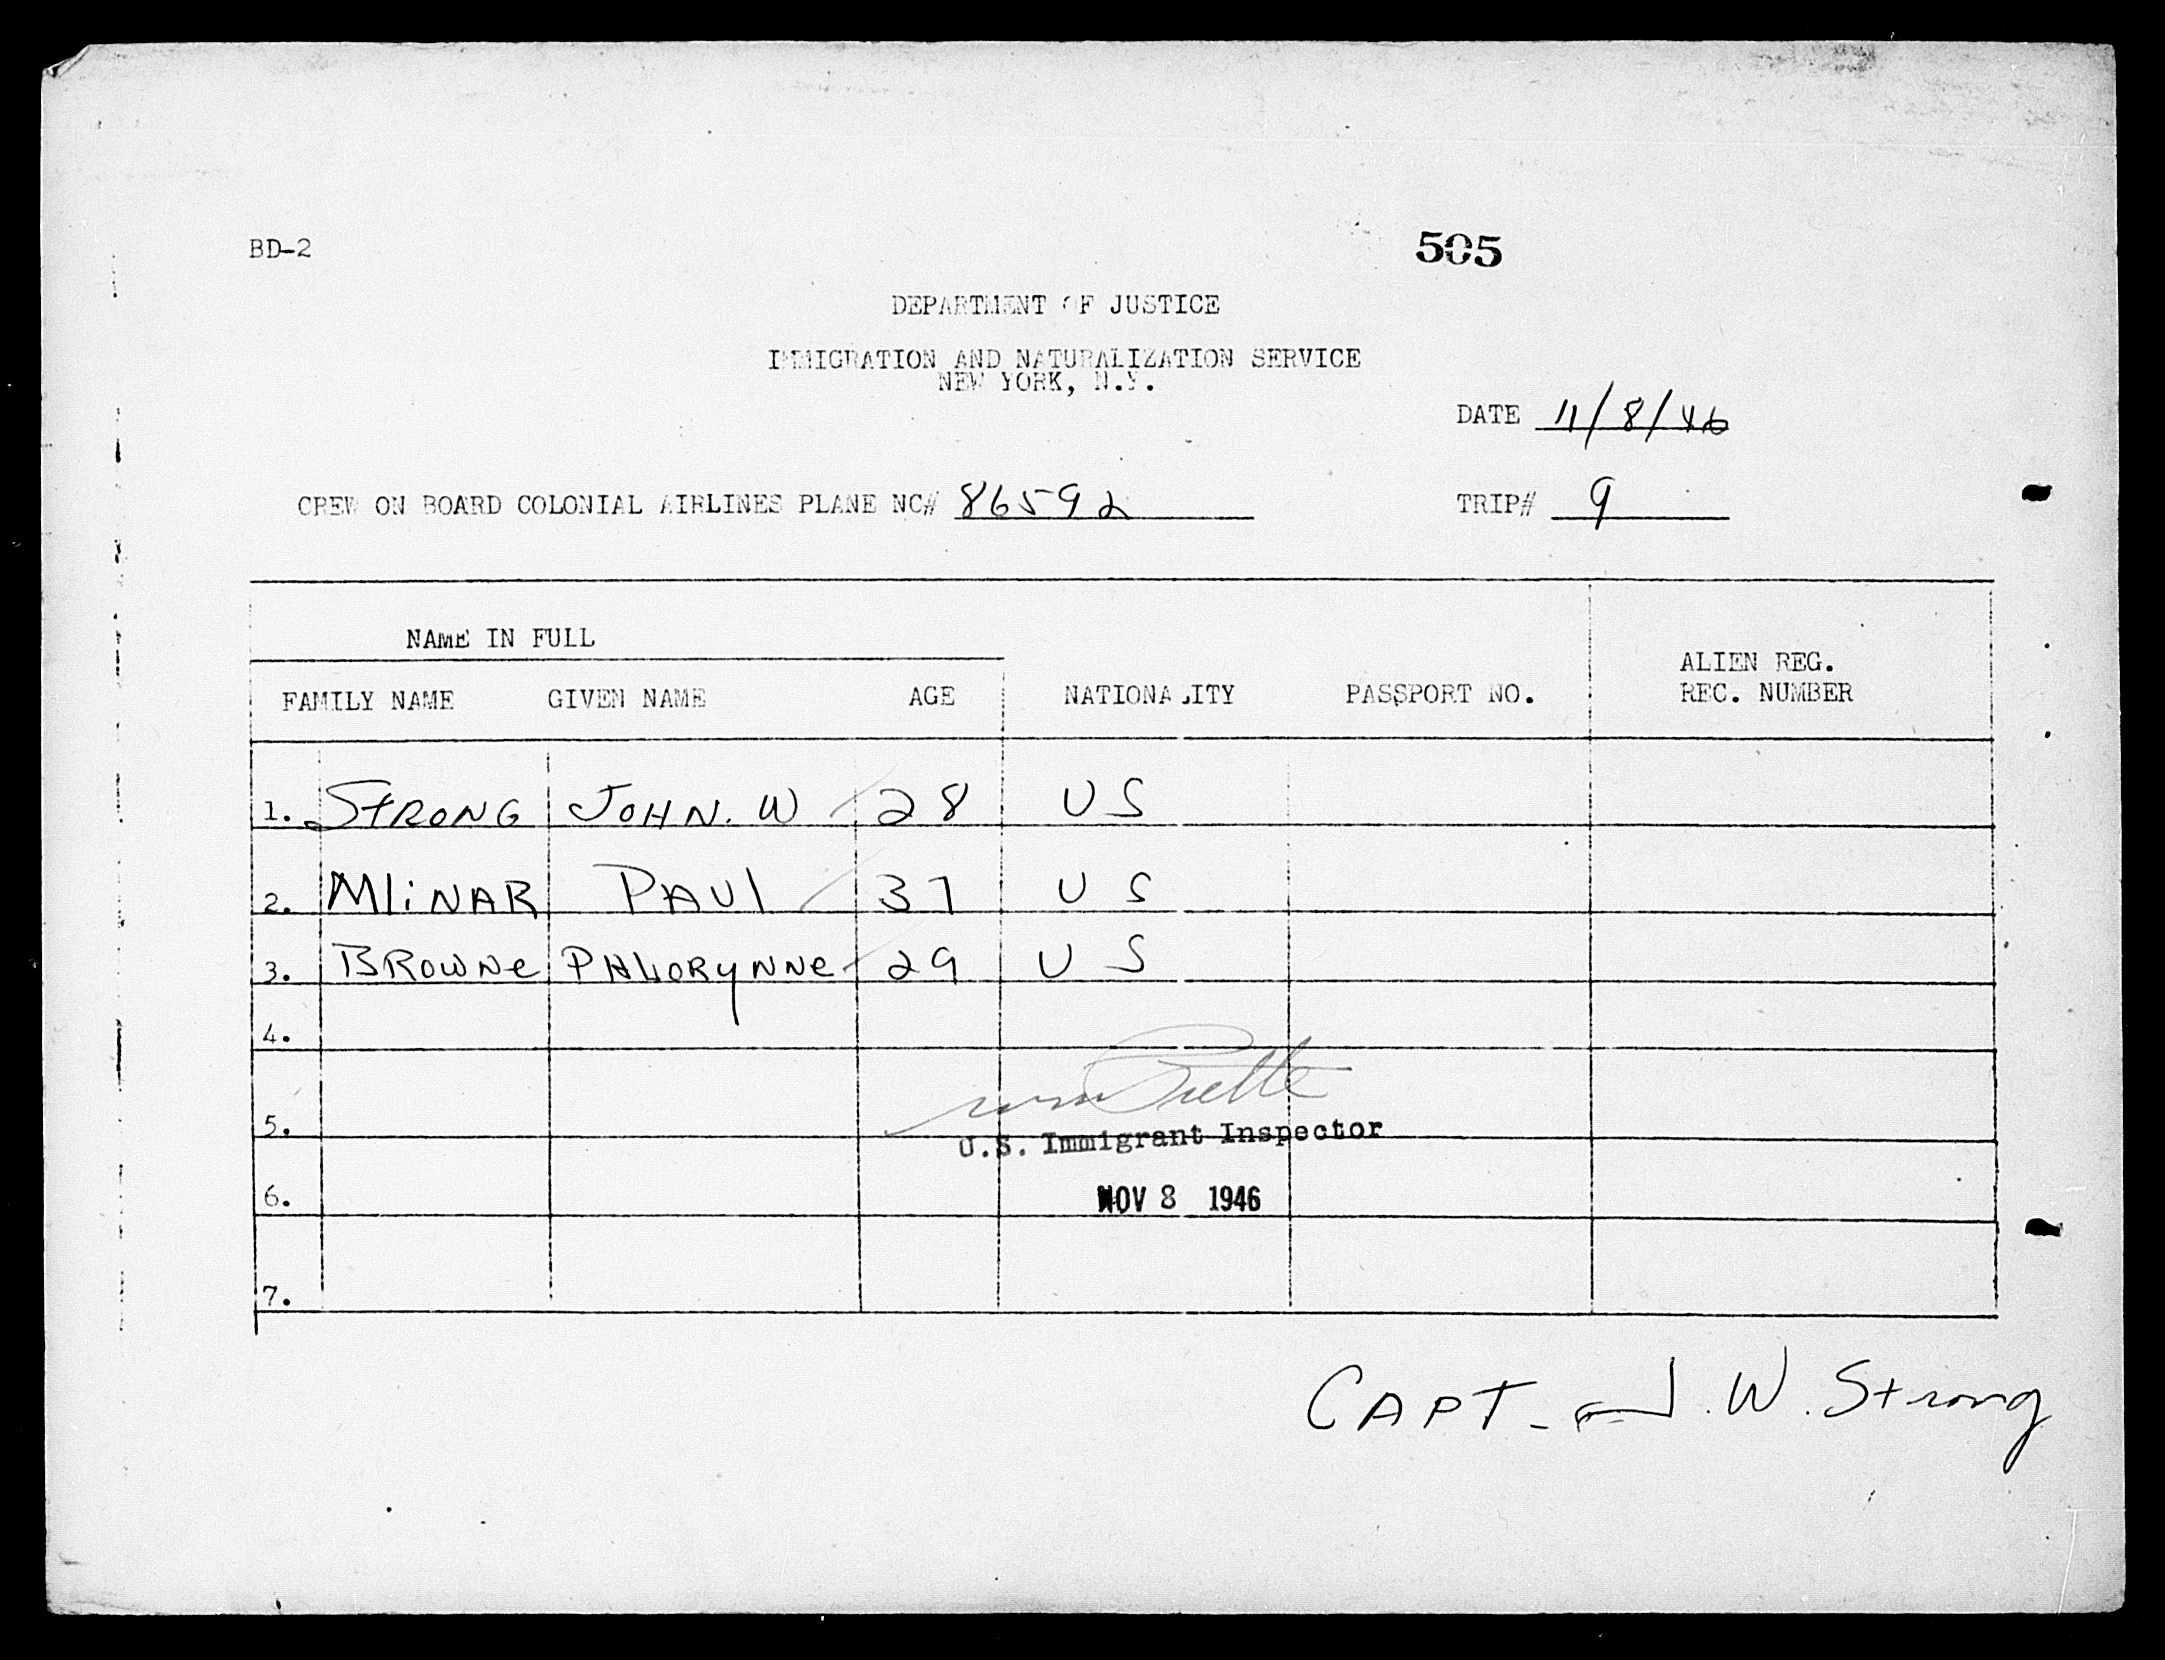 BD-2
505
DEPARTMENT OF JUSTICE
IMMIGRATION AND NATURALIZATION SERVICE
NEW YORK, N.Y.
DATE 11/8/46
CREW ON BOARD COLONIAL AIRLINES PLANE NC# 86592 TRIP# 9
NAME IN FULL
ALIEN REG.
FAMILY NAME GIVEN NAME AGE NATIONALITY PASSPORT NO. REC. NUMBER
1. STRONG JOHN. W 28 US
2. MliNAR PAUl 37 US
3. BROWNe 29 US
4.
5.
U.S. Immigrant Inspector
6.
NOV 8 1946
7.
CAPT - J. W. Strong